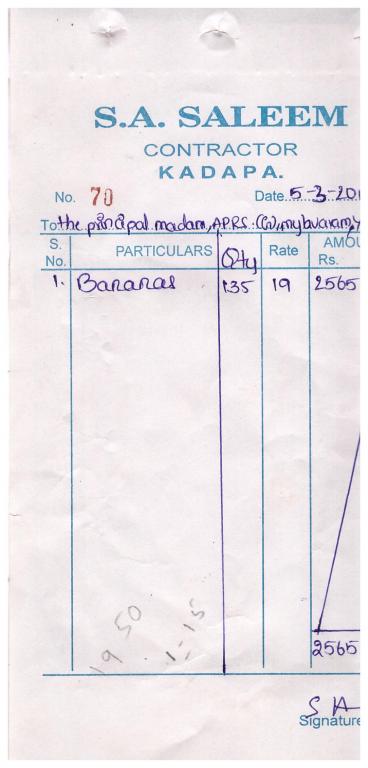 S.A. SALEEM
CONTRACTOR
KADAPA.
No. 70 Date 5-3-201
To the principal madam, A.P.R.S. (G), mybvaram, Y
S. No. PARTICULARS Qty Rate AMOU Rs.
1. Bananas 135 19 2565
19 50 1-15
2565
S A
Signature